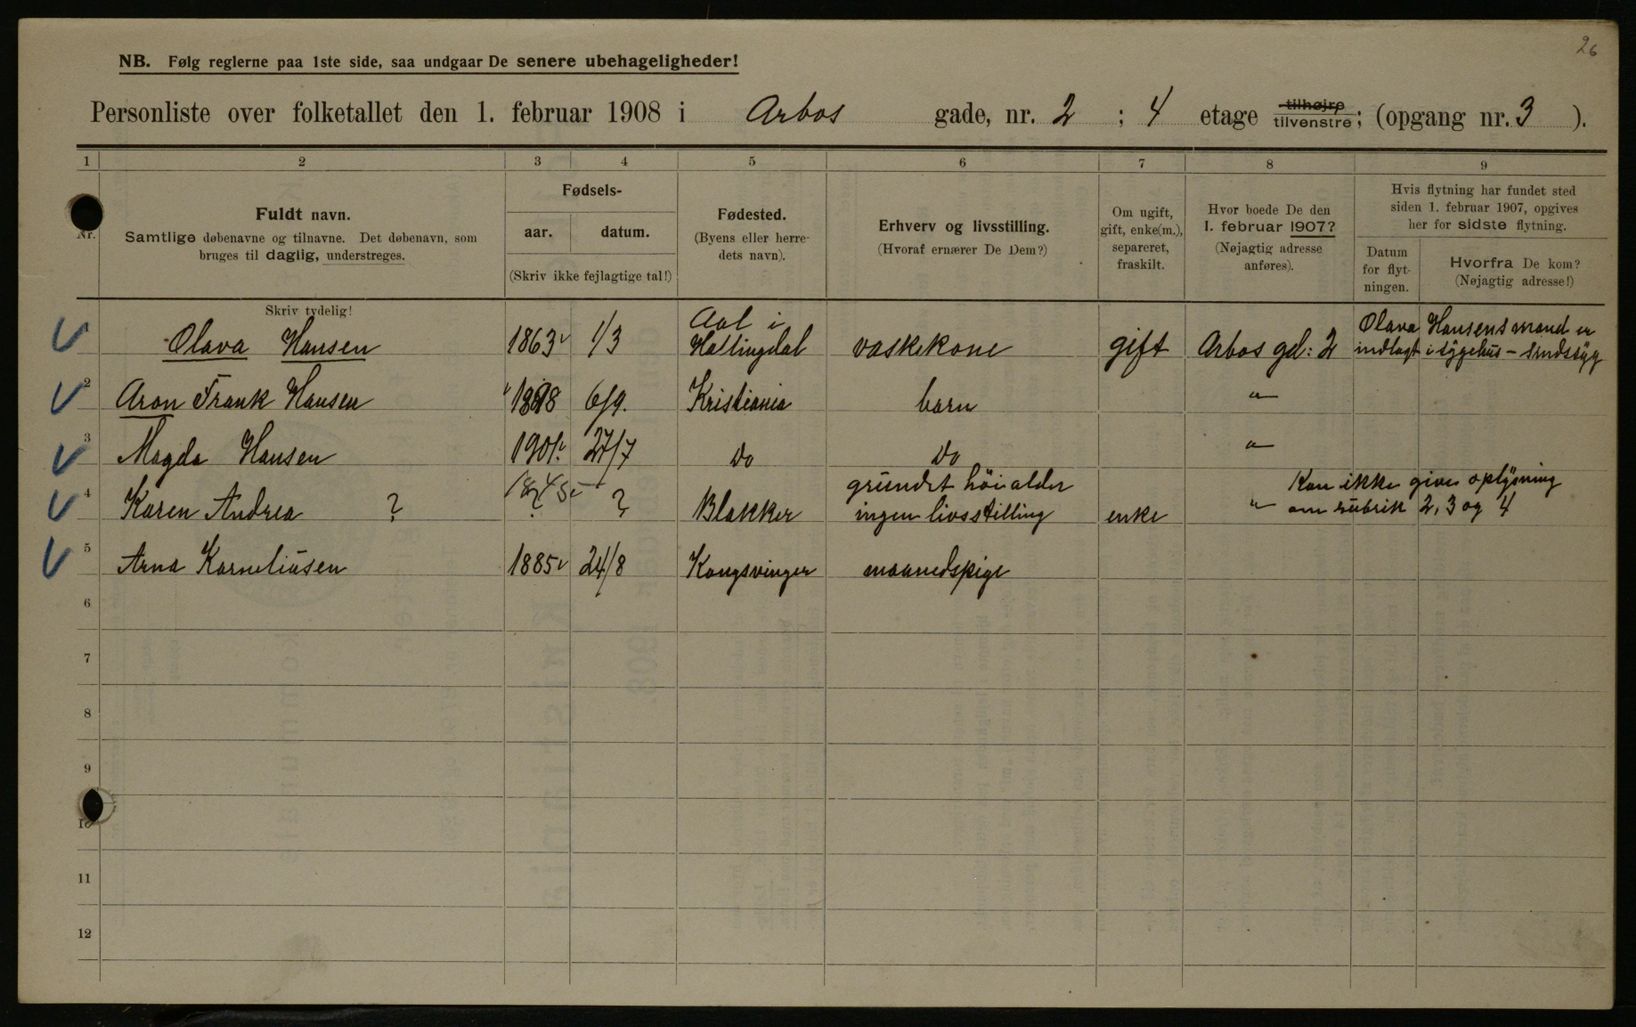 26
NB. Følg reglerne paa 1ste side, saa undgaar De senere ubehageligheder!
Personliste over folketallet den 1. februar 1908 i Arbos gade, nr. 2 ; 4 etage tilhøjre tilvenstre; (opgang nr. 3 ).
1 2 3 4 5 6 7 8 9
Nr.
Fuldt navn.
Samtlige døbenavne og tilnavne. Det døbenavn, som
bruges til daglig, understreges.
Fødsels-
aar. datum.
(Skriv ikke fejlagtige tal!)
Fødested.
(Byens eller herre-
dets navn).
Erhverv og livsstilling.
(Hvoraf ernærer De Dem?)
Om ugift,
gift, enke(m.),
separeret,
fraskilt.
Hvor boede De den
1. februar 1907?
(Nøjagtig adresse
anføres).
Hvis flytning har fundet sted
siden 1. februar 1907, opgives
her for sidste flytning.
Datum
for flyt-
ningen.
Hvorfra De kom?
(Nøjagtig adresse!)
Skriv tydelig!
1 Olava Hansen 1863 1/3 Aal i Hallingdal vaskekone gift Arbos gd: 2 Olava Hansens mand er
indlagt i sygehus - sindssyg
2 Aron Frank Hansen 1898 6/9. Kristiania barn "
3 Magda Hansen 1901 27/7 do do "
4 Karen Andrea ? 1845 ? ? Blakker grundet høi alder
ingen livsstilling enke " Kan ikke give oplysning
om rubrik 2, 3 og 4
5 Arna Karneliusen 1885 24/8 Kongsvinger maanedspige
6
7
8
9
10
11
12